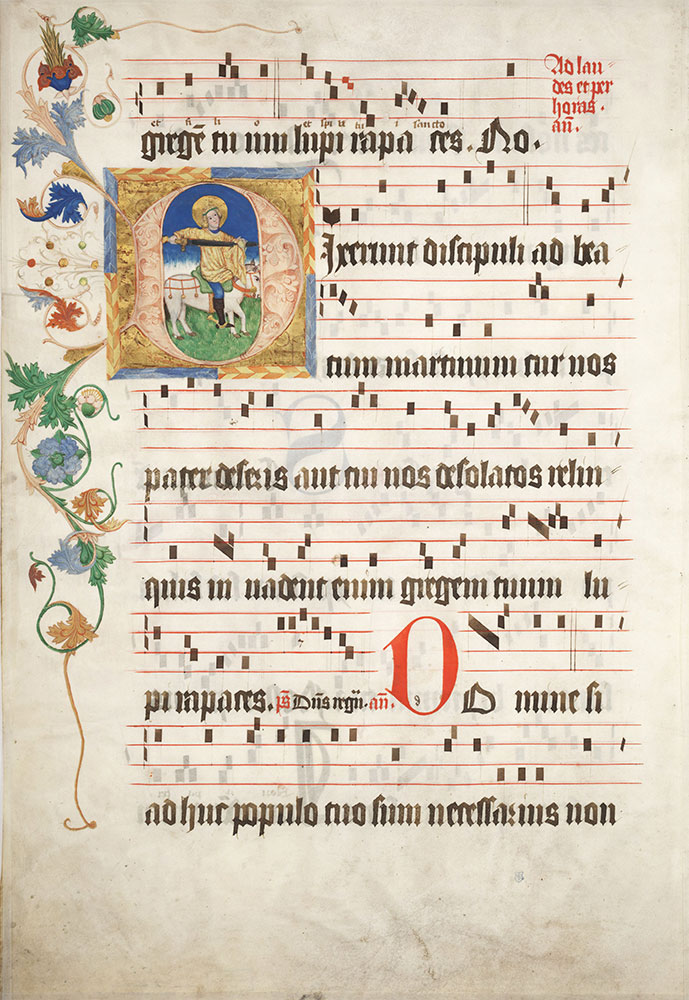 Ad lau
des et per
horas.
an̄.
et fi li o et spi ri tu i sancto
gregē tu um lupi rapa ces. No.
Ixerunt discipuli ad bea
tum martinum cur nos
pater deseris aut cui nos desolatos relin
quis in vadent enim gregem tuum lu
pi rapaces. ps̄ Dn̄s regn̄. an̄.
O D mine si
adhuc populo tuo sum necessarius non